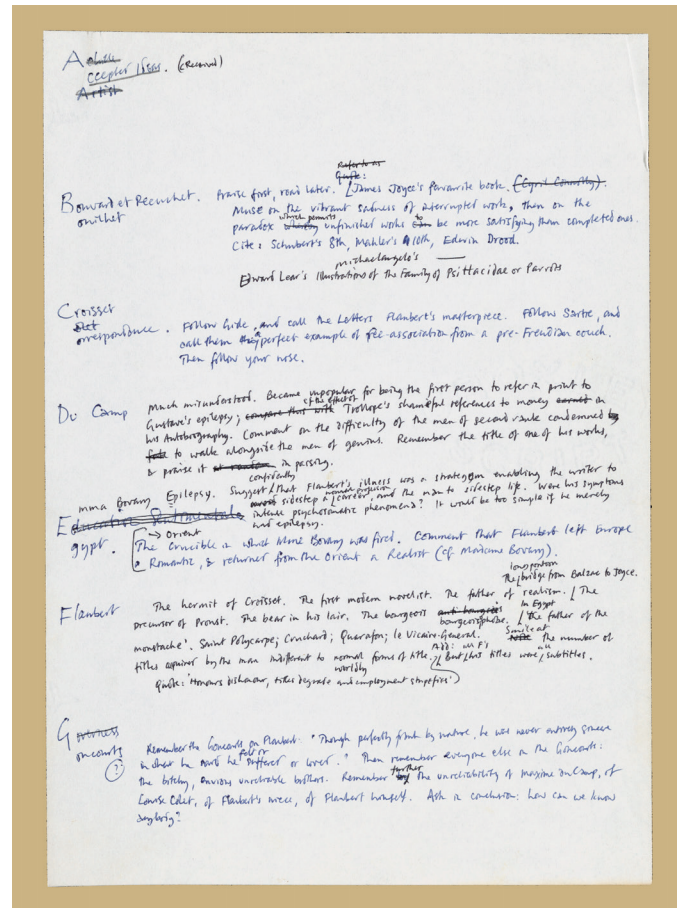 A
Accepted Ideas. (Received)
Artist
Refer to as
Quote:
Bouvard et Pecuchet. Praise first, read later. [James Joyce's favourite book. (Cyril Connolly).
ouilhet Muse on the vibrant sadness of interrupted work, then on the
which permits to
paradox whereby unfinished works can be more satisfying than completed ones.
Cite: Schubert's 8th, Mahler's 10th, Edwin Drood.
michaelangelo's
Edward Lear's Illustrations of the Family of Psittacidae or Parrots
Croisset
orrespondence. Follow Gide, and call the Letters Flaubert's masterpiece. Follow Sartre, and
call them a perfect example of free-association from a pre-Freudian couch.
Then follow your nose.
Du Camp Much misunderstood. Became unpopular for being the first person to refer in print to
cf the effect of
Gustave's epilepsy; compare this with Trollope's shameful references to money earned in
his Autobiography. Comment on the difficulty of the men of second rank condemned by
fate to walk alongside the men of genius. Remember the title of one of his works,
& praise it at random in passing.
confidently
Epilepsy. Suggest that Flaubert's illness was a stratagem enabling the writer to
mma Bovary
sidestep a career, and the man to sidestep life. Were his symptoms
Education Sentimentale intense psychosomatic phenomena? It would be too simple if he merely
had epilepsy.
→ Orient
gypt. The Crucible in which Mme Bovary was fired. Comment that Flaubert left Europe
a Romantic, & returned from the Orient a Realist (cf Madame Bovary).
long pontoon
The bridge from Balzac to Joyce.
Flaubert The hermit of Croisset. The first modern novelist. The father of realism. [The
precursor of Proust. The bear in his lair. The bourgeois anti-bourgeois
bourgeoisphobe. In Egypt 'the father of the
moustache'. Saint Polycarpe; Cruchard; Quarafon; le Vicaire-Général. Smile at the number of
Add: all F's
titles acquired by the man indifferent to normal forms of title. But his titles were all subtitles.
worldly
Quote: 'Honours dishonour, titles degrade and employment stupefies')
Governess
oncourts Remember the Goncourts on Flaubert: "Though perfectly frank by nature, he was never entirely sincere
felt or
in what he said he suffered or loved." Then remember everyone else on the Goncourts:
(?) the bitchy, envious unreliable brothers. Remember further the unreliability of Maxime du Camp, of
Louise Colet, of Flaubert's niece, of Flaubert himself. Ask in conclusion: how can we know
anybody?